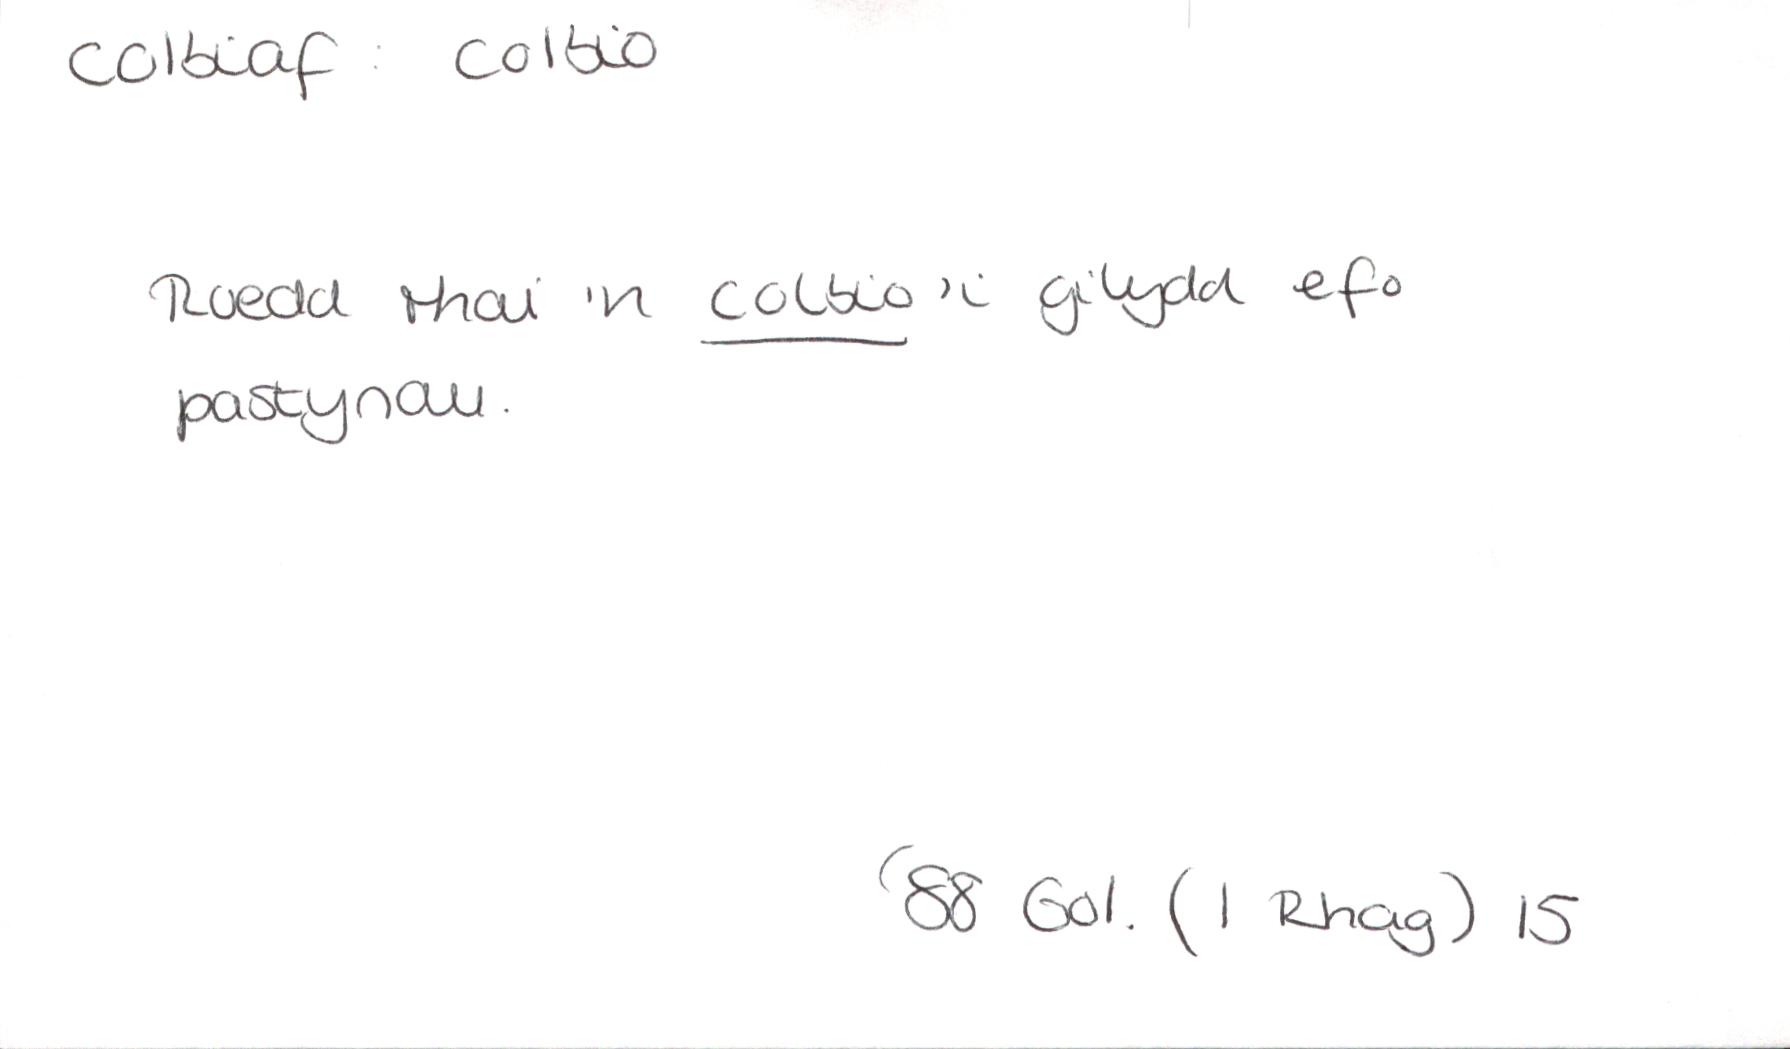 colbiaf : colbio
Roedd rhai 'n colbio 'i gilydd efo
pastynau.
'88 Gol. (1 Rhag) 15